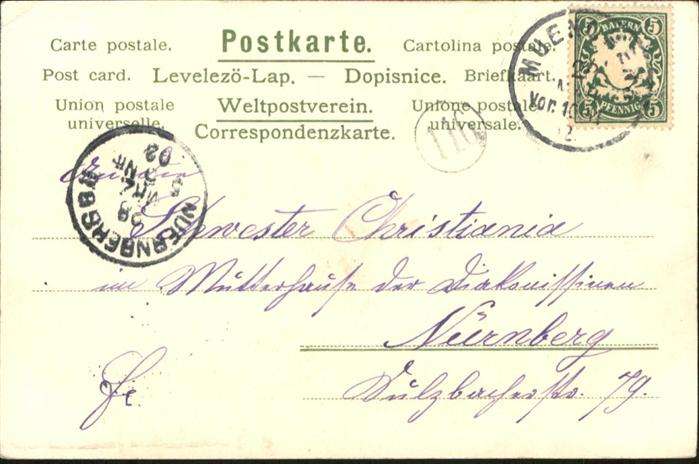 Carte postale. Postkarte. Cartolina postale.
Post card. Levelezö-Lap. — Dopisnice. Briefkaart.
Union postale universelle. Weltpostverein. Unione postale universale.
Correspondenzkarte.
BAYERN
5 5
5 5
PFENNIG
MUENC
Vor. 10
110
NUERNBERG
02
Schwester Christiania
im Mutterhause der Diakonissinen
Nürnberg
Sulzbacherstr. 79.
fr.